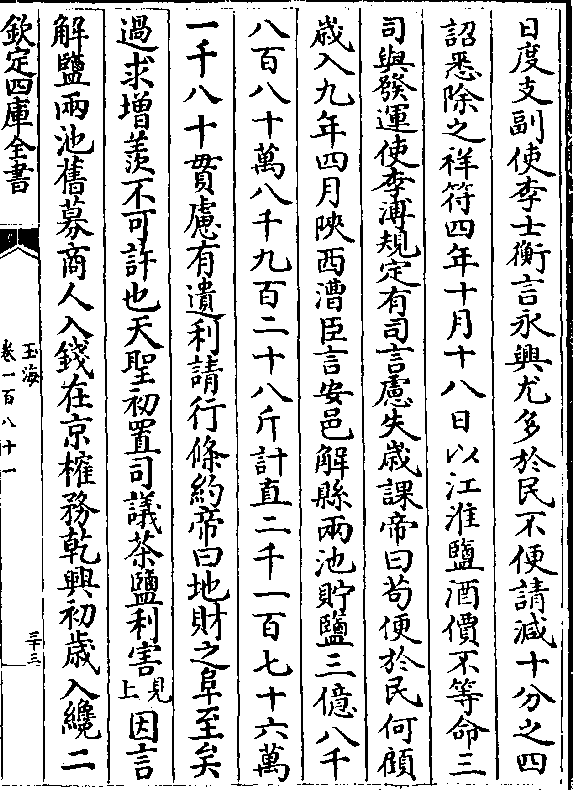 日度支副使李士衡言永興尤多於民不便請減十分之四
詔悉除之祥符四年十月十八日以江淮鹽酒價不等命三
司與發運使李溥規定有司言慮失歲課帝曰苟便於民何顧
歲入九年四月陝西漕臣言安邑解縣兩池貯鹽三億八千
八百八十萬八千九百二十八斤計直二千一百七十六萬
一千八十貫慮有遺利請行條約帝曰地財之阜至矣
過求增羨不可許也天聖初置司議茶鹽利害見上因言
解鹽兩池舊募商人入錢在京榷務乾興初歲入纔二
欽定四庫全書
玉海
卷一百八十一
三十三